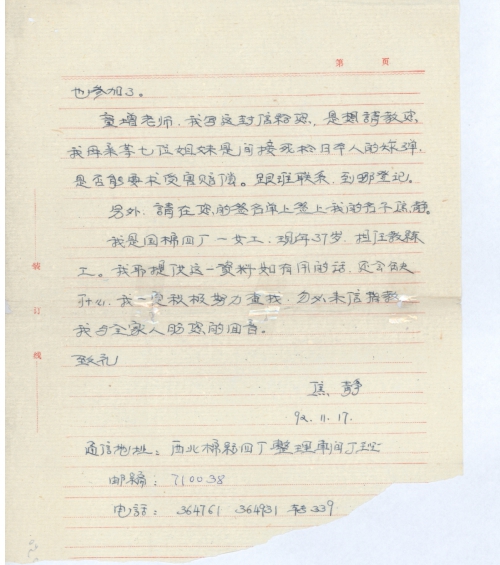 第 页
也参加了。
童增老师,我写这封信给您,是想請教您,
我母亲等七位姐妹是间接死於日本人的炸弹,
是否能要求受害赔偿。跟谁联系,到哪登记。
另外,請在您的签名单上签上我的名字焦靜。
我是国棉四丁一女工,现年37岁,担任教练
工。我市提供这一資料如有用的话,还会缺
什么,我一定积极努力查找,务必来信指教
我与全家人盼您的回音。
致礼
焦 靜
92.11.17.
通信地址:西北棉紡四丁整理車间丁班
邮編:710038
电話:364761 364931 转339
装
订
线